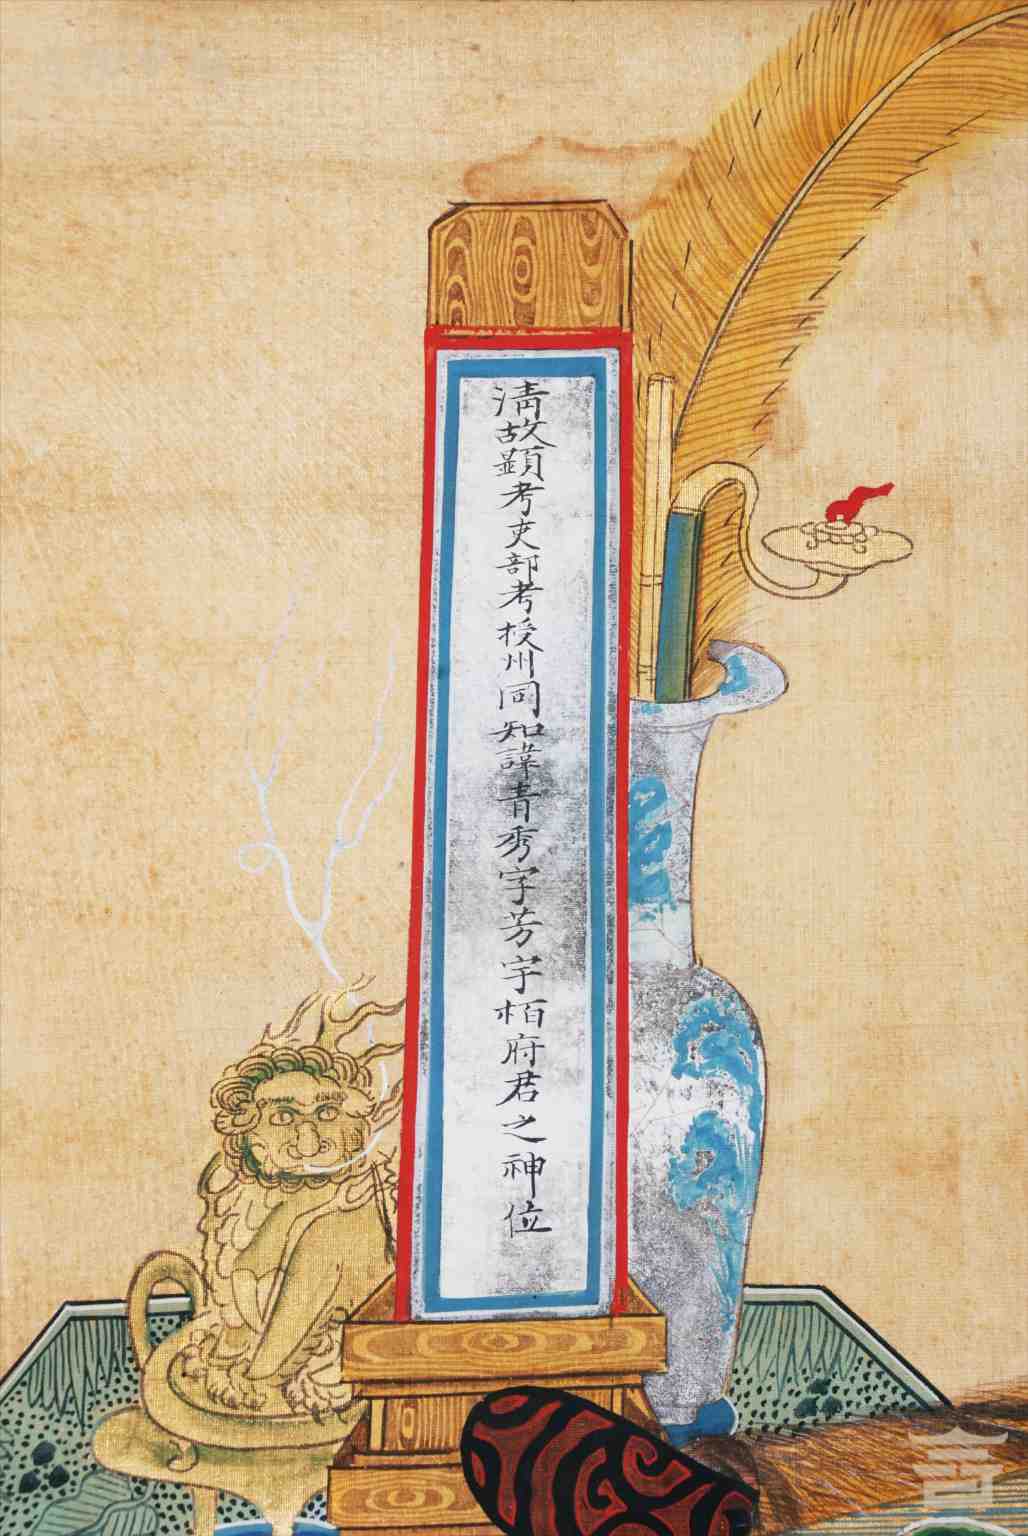 清故顯考吏部考授州同知諱青秀字芳宇栢府君之神位